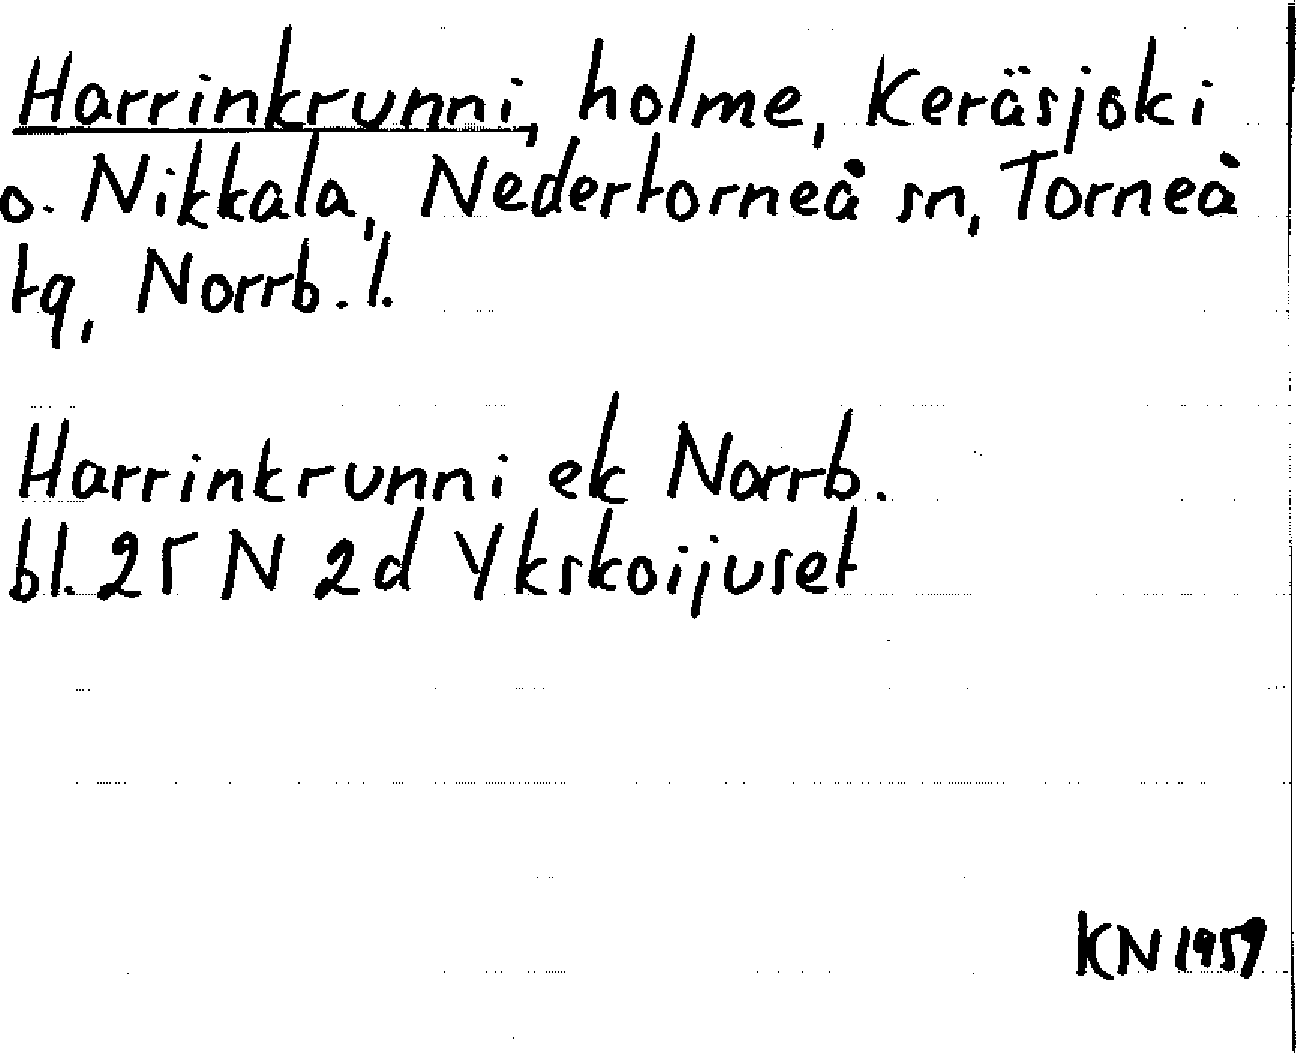 Harrinkrunni, holme, Keräsjoki
o. Nikkala, Nedertorneå sn, Torneå
tg, Norrb. l.
Harrinkrunni ek Norrb.
bl. 25 N 2d Ykskoijuset
KN 1959